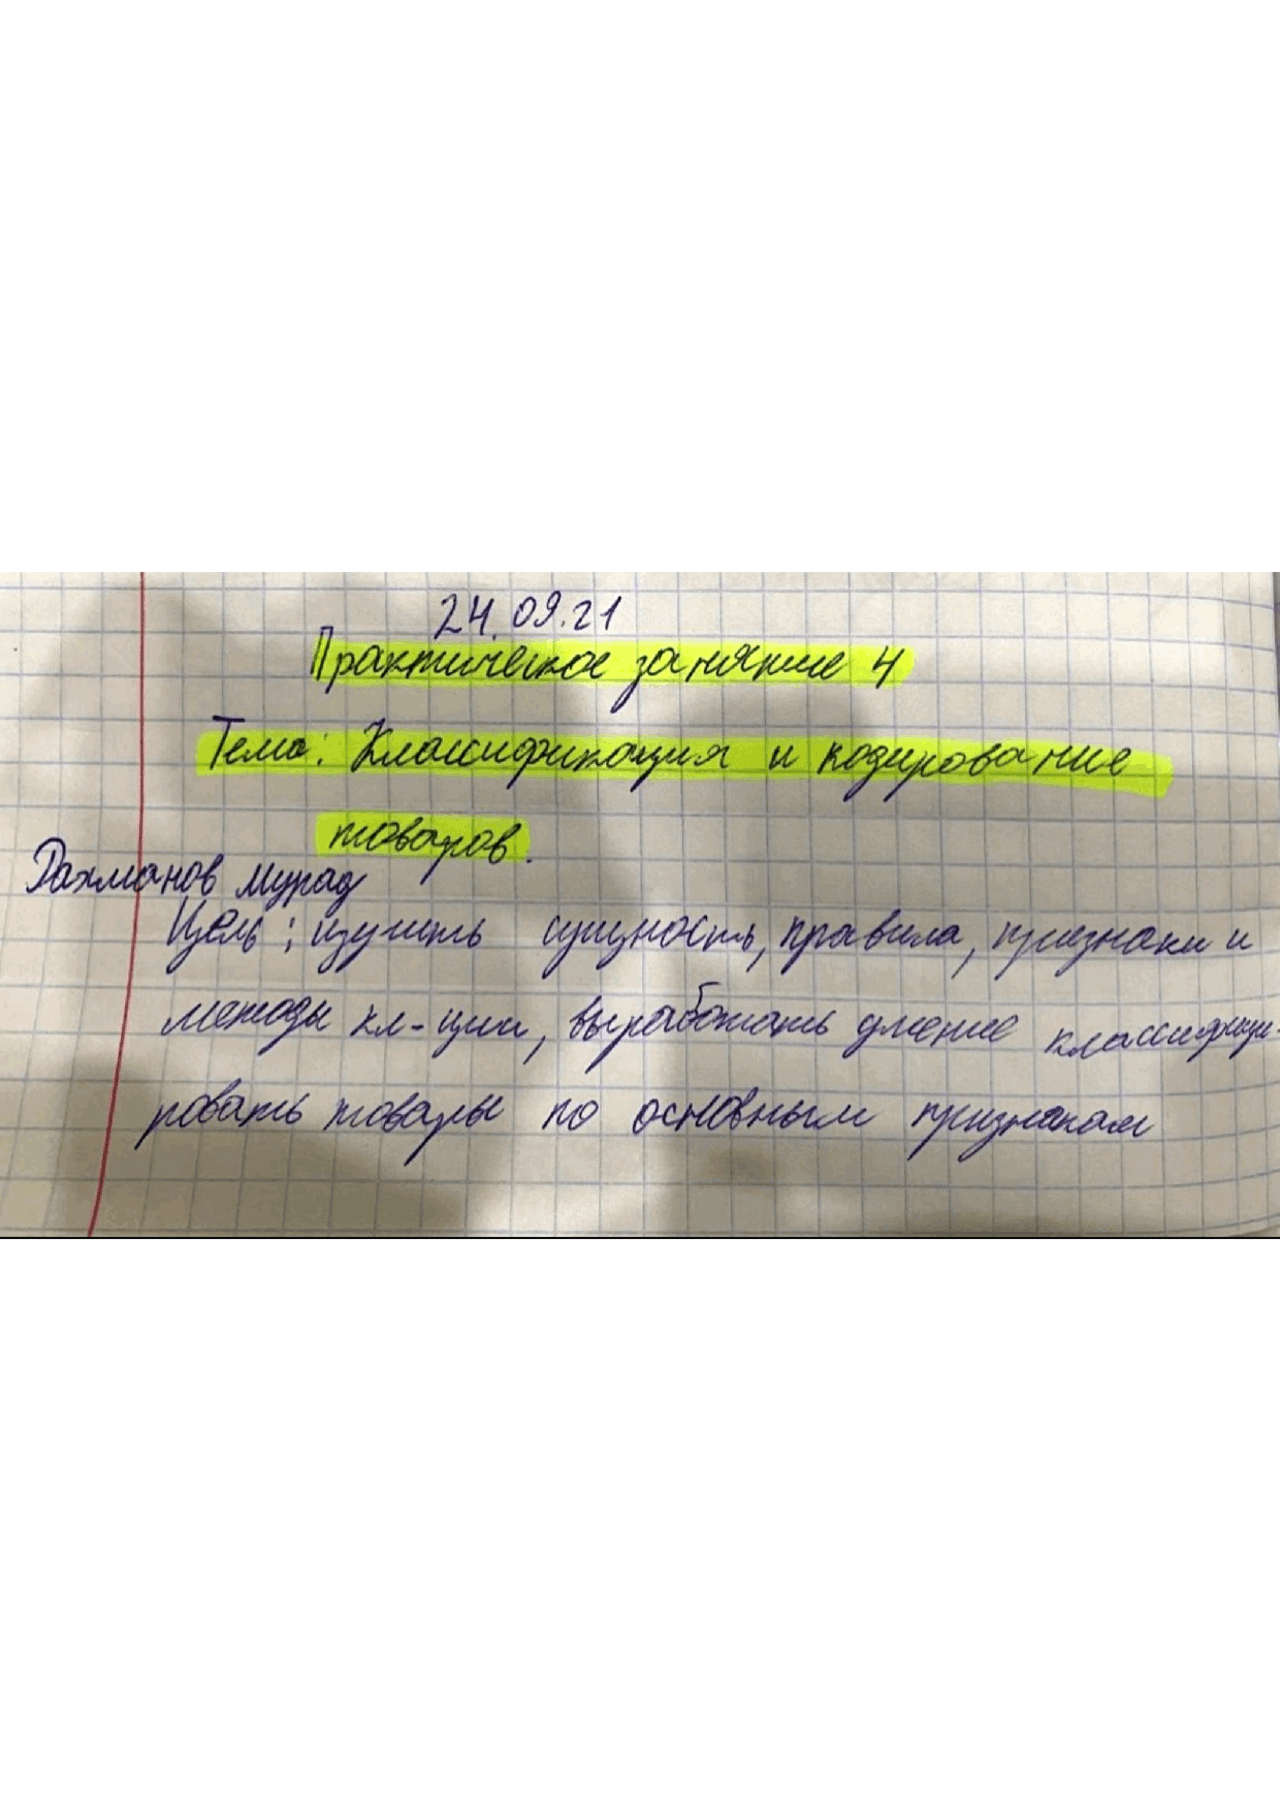 24.09.21
Практическое занятие 4
Тема: Классификация и кодирование
товаров.
Рахманов Мурад
Цель: изучить сущность, правила, признаки и
методы кл-ции, выработать умение классифици-
ровать товары по основным признакам